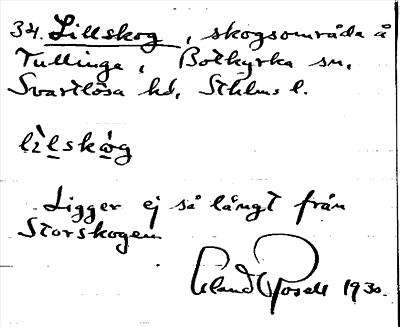 34. Lillskog, skogsområde å
Tullinge, Botkyrka sn,
Svartlösa hd, Sthlms l.
lìlskóg
Ligger ej så långt från
Storskogen
Erland Rosell 1930.